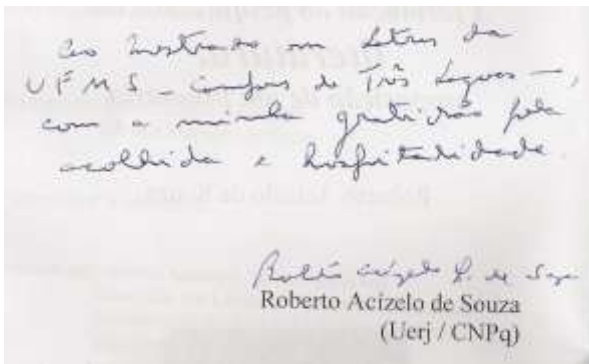 Ao Mestrado em Letras da
UFMS – Campus de Três Lagoas –,
com a minha gratidão pela
acolhida e hospitalidade.
Roberto Acízelo Q. de Souza
Roberto Acízelo de Souza
(Uerj / CNPq)